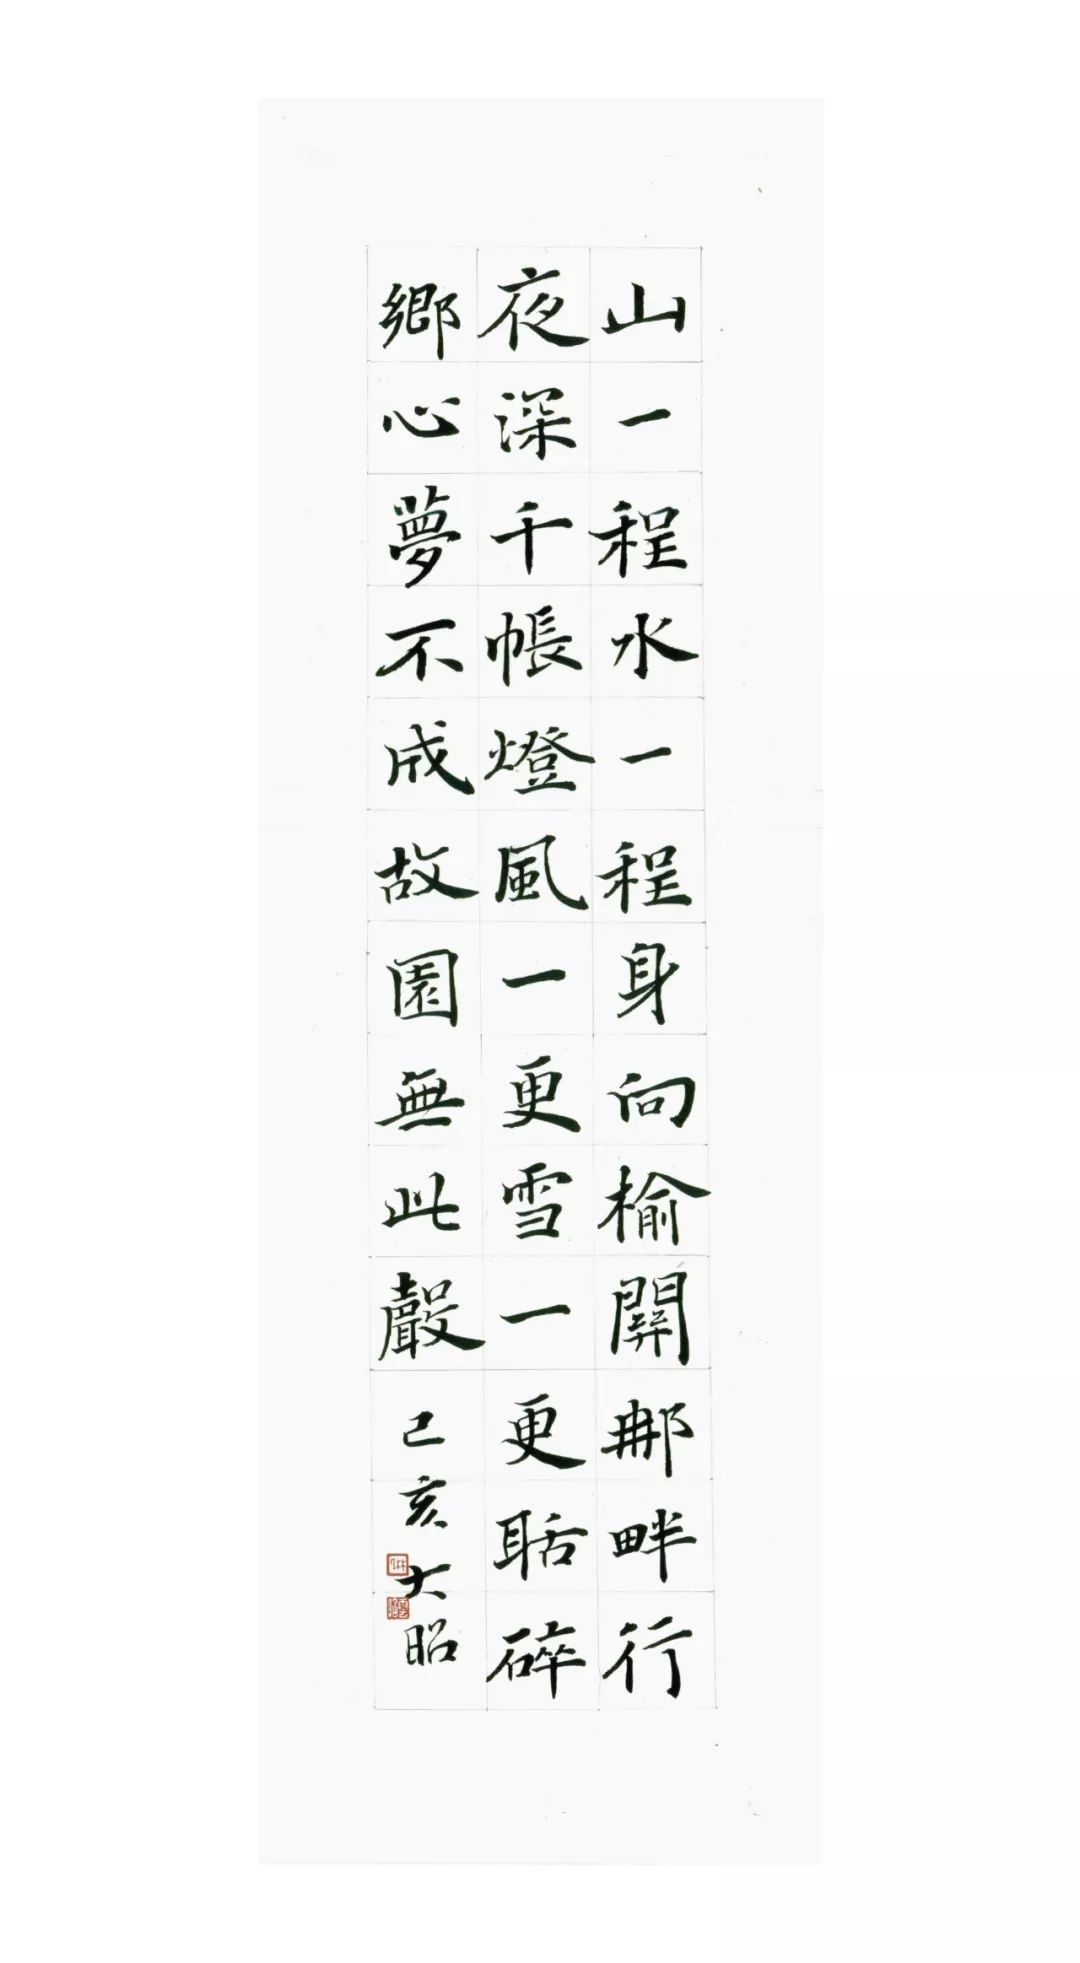 山一程水一程身向榆關那畔行
夜深千帳燈風一更雪一更聒碎
鄉心夢不成故園無此聲
己亥大昭